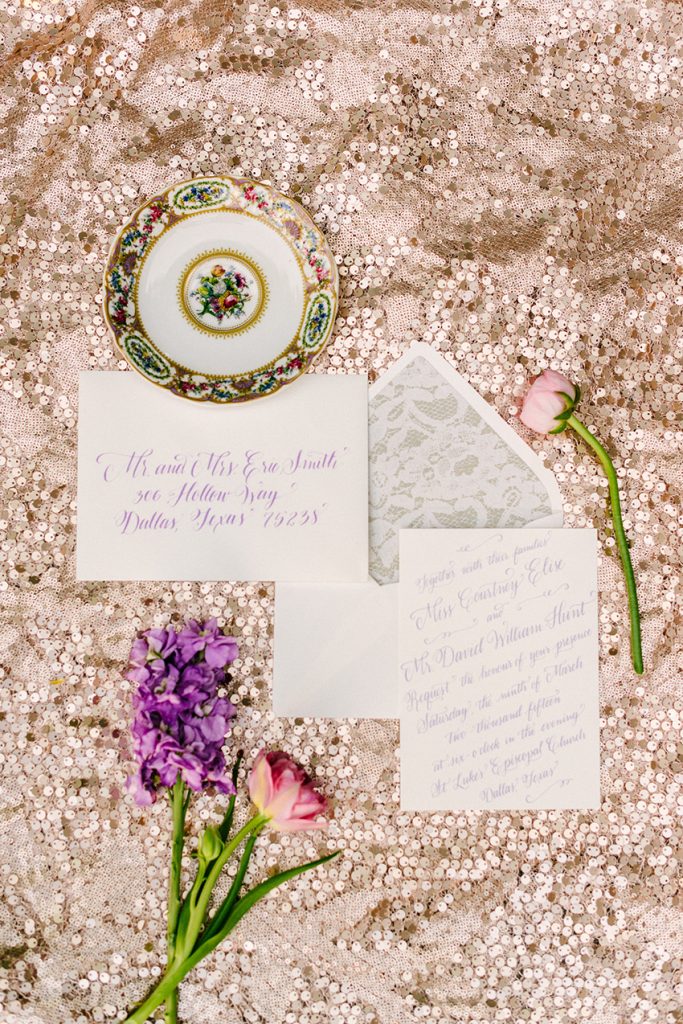 Mr. and Mrs Eric Smith
306 Hollow Way
Dallas, Texas 75238
Together with their families
Miss Courtney Elise
and
Mr David William Hunt
Request the honour of your presence
Saturday, the ninth of March
two thousand fifteen
at six o'clock in the evening
St Lukes Episcopal Church
Dallas, Texas